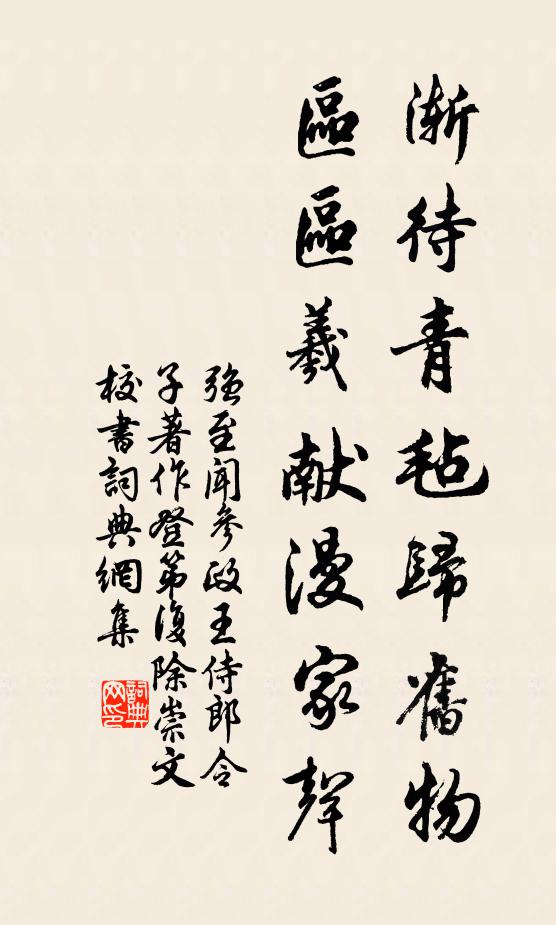 漸待青氈歸舊物
區區羲献漫家聲
強至聞參政王侍郎令
子著作登第復除崇文
校書詞典網集
詞典
网印